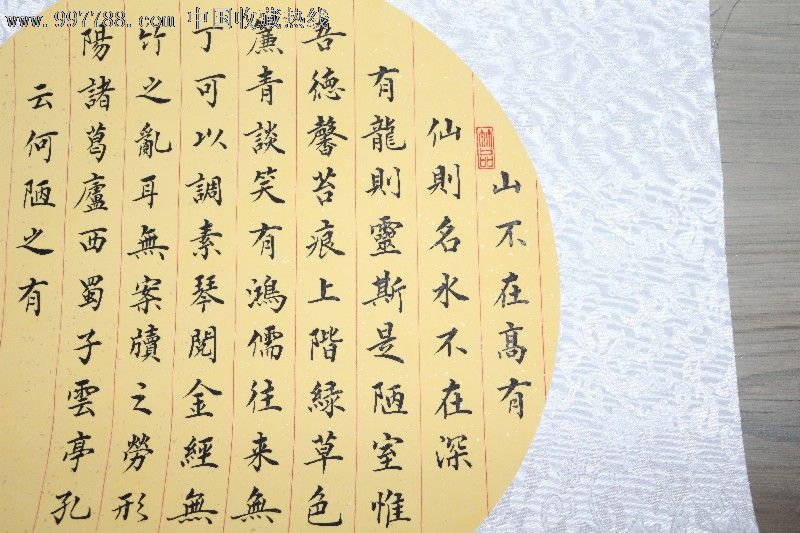 www.997788.com 中国收藏热线
山不在髙有
仙則名水不在深
有龍則靈斯是陋室惟
吾德馨苔痕上階緑草色
簾青談笑有鴻儒往来無
丁可以調素琴閱金經無
竹之亂耳無案牘之勞形
陽諸葛廬西蜀子雲亭孔
云何陋之有